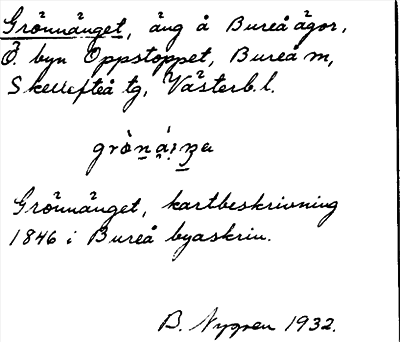 Grönnänget, äng å Bureå ägor,
Ö. byn Oppstoppet, Bureå sn,
Skellefteå tg, Västerb. l.
Grönnänget, kartbeskrivning
1846 i Bureå byaskrin.
B. Nygren 1932.